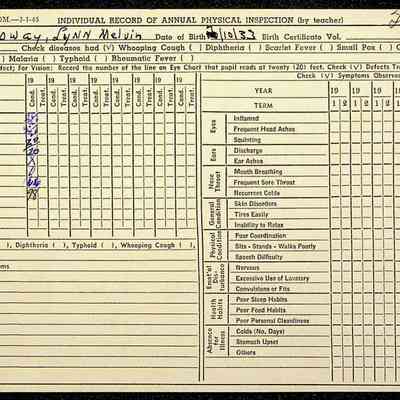 OM.—3-1-45 INDIVIDUAL RECORD OF ANNUAL PHYSICAL INSPECTION (by teacher)
oway, Lynn Melvin Date of Birth /10/33 Birth Certificate Vol.
Check diseases had (√) Whooping Cough ( ) Diphtheria ( ) Scarlet Fever ( ) Small Pox ( )
) Malaria ( ) Typhoid ( ) Rheumatic Fever ( )
fect; For Vision: Record the number of the line on Eye Chart that pupil reads at twenty (20) feet. Check (√) Defects Tre
Check (√) Symptoms Observe
19 19 19 19 19 19 19
Cond. Treat. Cond. Treat. Cond. Treat. Cond. Treat. Cond. Treat. Cond. Treat. Cond. Treat.
YEAR 19 19 19 19
TERM 1 2 1 2 1 2 1
Eyes
Inflamed
Frequent Head Aches
Squinting
Ears
Discharge
Ear Aches
Nose Throat
Mouth Breathing
Frequent Sore Throat
Recurrent Colds
General Condition
Skin Disorders
Tires Easily
Inability to Relax
Physical Condition
Poor Coordination
Sits - Stands - Walks Poorly
Speech Difficulty
Emot'al Dis- turbance
Nervous
Excessive Use of Lavatory
Convulsions or Fits
Health Habits
Poor Sleep Habits
Poor Food Habits
Poor Personal Cleanliness
Absence for Illness
Colds (No. Days)
Stomach Upset
Others
), Diphtheria ( ), Typhoid ( ), Whooping Cough ( ),
ems